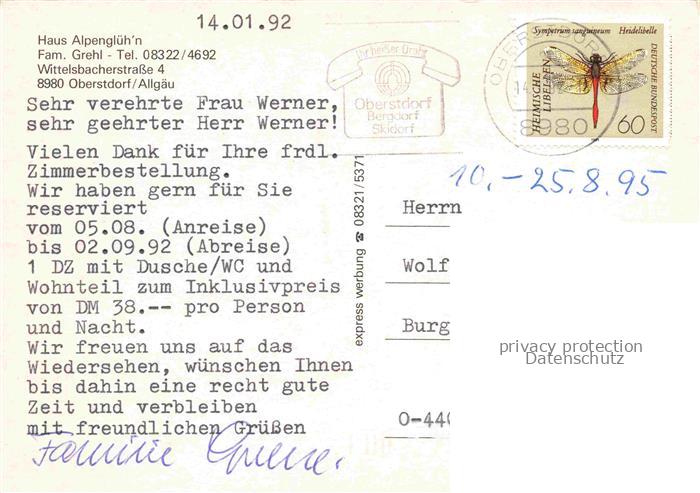 14.01.92
Haus Alpenglüh'n
Fam. Grehl - Tel. 08322/4692
Wittelsbacherstraße 4
8980 Oberstdorf/Allgäu
Sehr verehrte Frau Werner,
sehr geehrter Herr Werner!
Vielen Dank für Ihre frdl.
Zimmerbestellung.
Wir haben gern für Sie
reserviert
vom 05.08. (Anreise)
bis 02.09.92 (Abreise)
1 DZ mit Dusche/WC und
Wohnteil zum Inklusivpreis
von DM 38.-- pro Person
und Nacht.
Wir freuen uns auf das
Wiedersehen, wünschen Ihnen
bis dahin eine recht gute
Zeit und verbleiben
mit freundlichen Grüßen
Familie
express werbung ☎ 08321/5371
Ihr heißer Draht
Oberstdorf
Bergdorf
Skidorf
OBERSTDORF
8980
Sympetrum sanguineum Heidelibelle
HEIMISCHE
LIBELLEN
DEUTSCHE BUNDESPOST
60
10.-25.8.95
Herrn
Wolf
Burg
O-440
privacy protection
Datenschutz